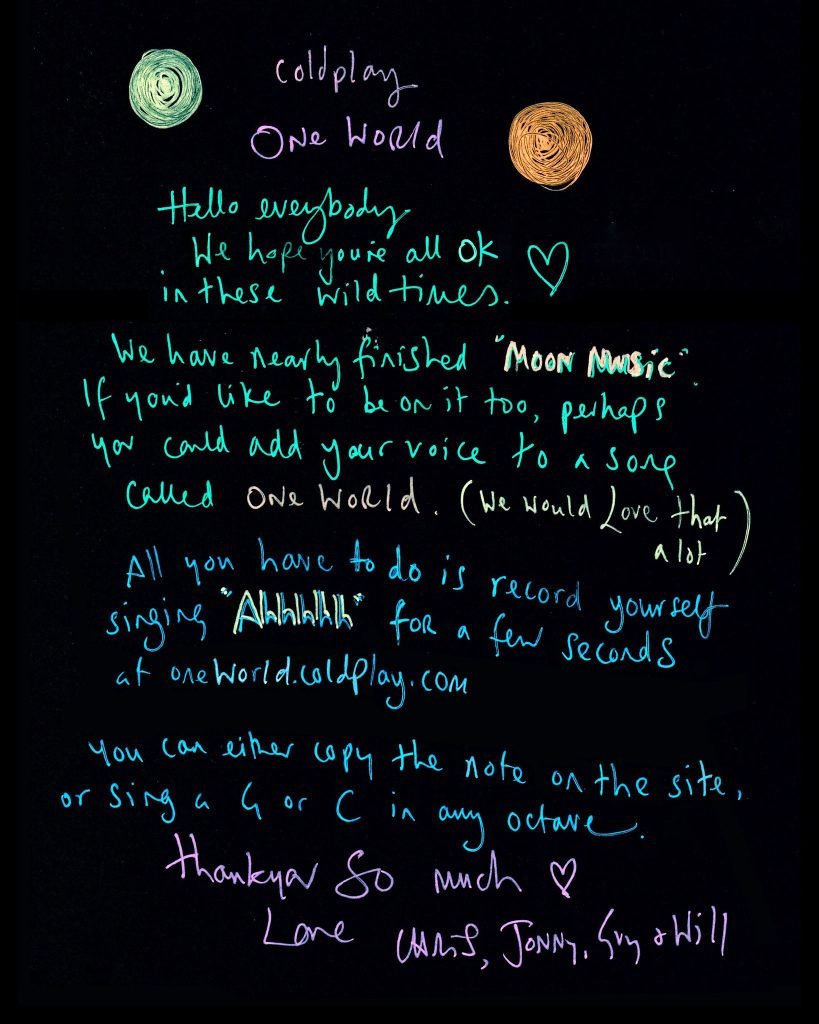 coldplay
ONE WORLD
Hello everybody
We hope you're all OK
in these wild times.
We have nearly finished "MOON MUSiC".
If you'd like to be on it too, perhaps
you could add your voice to a song
called ONE WORLD. (We would Love that
a lot)
All you have to do is record yourself
singing "Ahhhhh" for a few seconds
at oneworld.coldplay.com
you can either copy the note on the site,
or sing a G or C in any octave.
thankyou So much
Love CHRIS, JONNY, Guy + Will